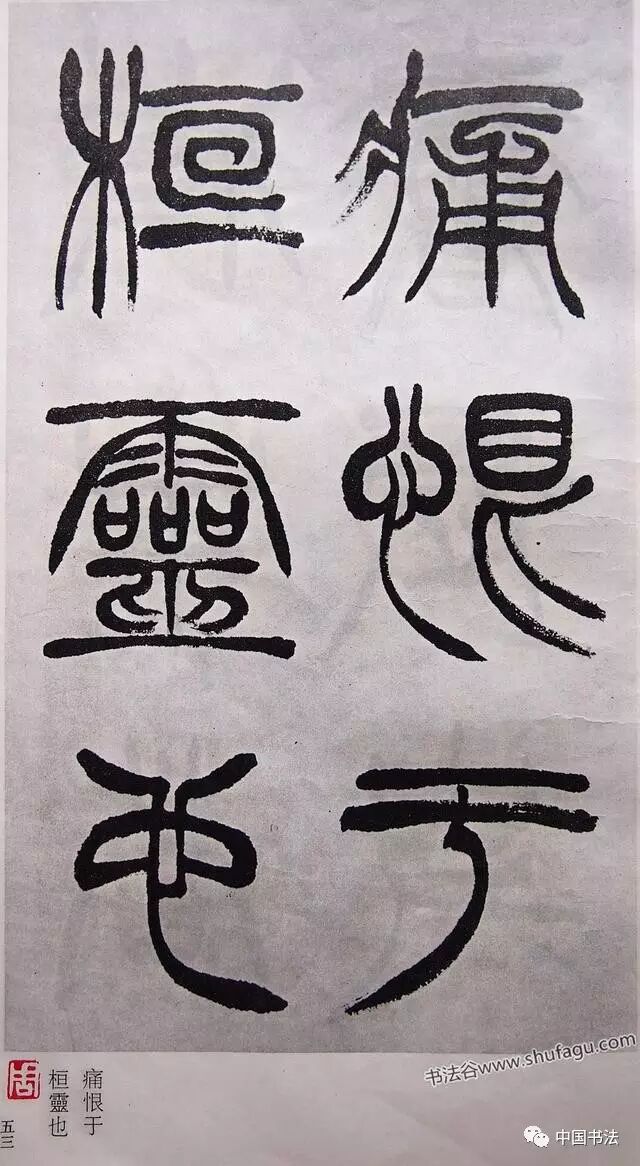 痛恨于
桓靈也
书法谷www.shufagu.com
痛恨于
桓靈也
五三
中国书法